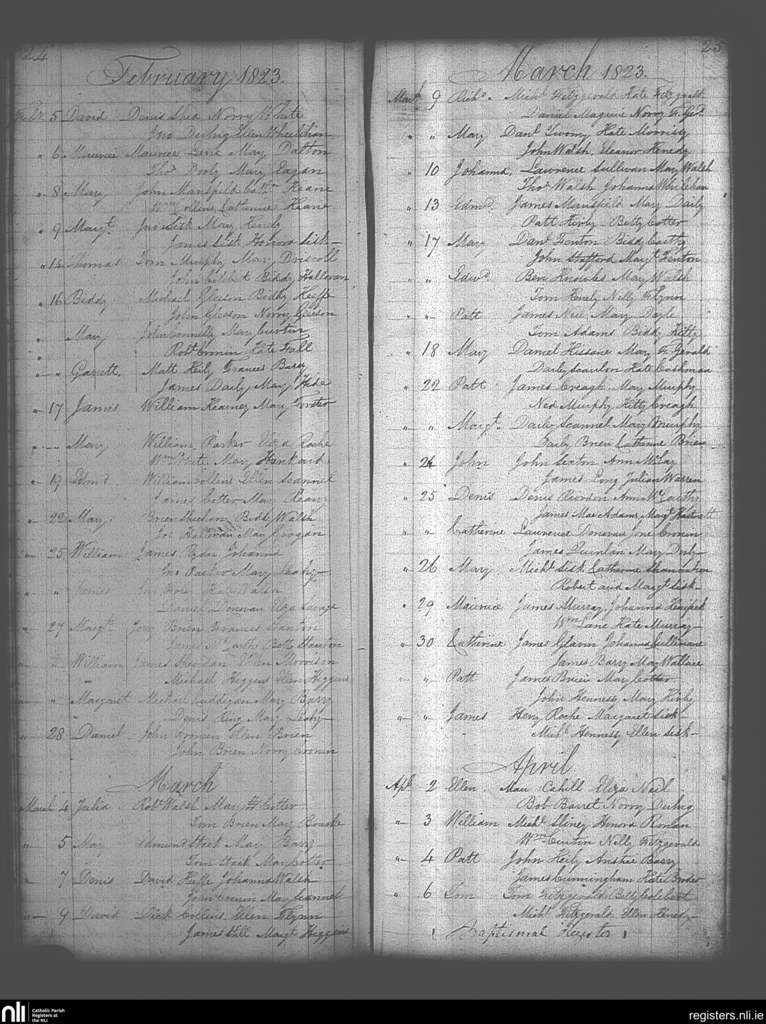 24
February 1823.
5 David Denis Shea Norry White
Jno Ellen
" 6 Maurice Maurice Lane Mary Dalton
Thos Dooly Mary Eagan
" 8 Mary John Mansfield Cathe Keane
Wm Catherine Keane
" 9 Margt. Jno Sisk Mary Henly
James Sisk Honora Sisk
Thomas Tom Murphy Mary Driscoll
John Biddy Halloran
" 16 Biddy Michael Gleeson Biddy Keeffe
John Gleeson Norry Gleeson
" Mary John Connelly Mary Curtin
Robt Cronin Kate Fall
" " Garrett Matt Heily Frances Barry
James Daily Mary Hide
" 17 James William Kearney Mary Forster
" Mary William Parker Eliza Roche
Wm White Mary Hankard
" 19 Edmd William Collins Ellen Scannel
James Cotter Mary Keane
" 22 Mary Brien Sheehan Biddy Walsh
Mary Googan
" 25 William James Ryan Johanna
Jno Parker Mary
" " James Jno Kate Walsh
Daniel Donovan Eliza Savage
" 27 Margt Brien Frances Stanton
James McCarthy Stanton
William James Sheridan Ellen Morrison
Michael Higgens Ellen Higgens
" Margaret Michael Luddigan Mary Barry
Denis King Mary Leahy
" 28 Daniel John Cronen Ellen Brien
John Brien Norry Cronin
March
March 4 Julia Robt Walsh Mary Cotter
Tom Brien Mary Bourke
" 5 Mary Edmund Stack Mary Barry
Tom Stack Mary Cotter
" 7 Denis David Keeffe Johanna Walsh
John Cronin Mary Scannel
" 9 David Dick Collins Ellen Flynn
James Hill Margt Higgens
25
March 1823.
March 9 Richd. Michl Fitzgerald Kate Fitzgerald
Daniel Magner Norry
" " Mary Danl Twomy Kate Morrissy
John Walsh Eleanor Kenedy
" 10 Johanna Lawrence Sullivan Mary Walsh
Thos Walsh Johanna Whelehan
" 13 Edmd. James Mansfield Mary Daily
Patt Betty Cotter
" 17 Mary Danl Fenton Biddy Carthy
John Stafford Margt Fenton
" Edwd. Ben Knowles Mary Walsh
Tom Henly Nelly Flynn
" Patt James Neil Mary Doyle
Tom Adams Biddy
" 18 Mary Daniel Hissane Mary FzGerald
Daily Scanlon Kate Cashman
" 22 Patt James Creagh Mary Murphy
Ned Murphy Kitty Creagh
" " Margt. Daily Scannel Mary Murphy
Daily Brien Catherine Brien
" 24 John John Sexton Ann McCay
James Long Julian Warren
" 25 Denis Denis Reordan Ann McCarthy
James MacAdams Margt
" Catherine Laurence Donovan Jone Cronen
James Quinlan Mary Dooly
" 26 Mary Michl Sisk Catharine Shannahan
Robert and Margt Sisk
" 29 Maurice James Murray Johanna
Wm Lane Kate Murray
" 30 Catherine James Glavin Johanna Cullinane
James Barry Mary Wallace
" " Patt James Brien Mary Cotter
John Hennessy Mary Kirby
" " James Heny Roche Margaret Sisk
Michl Hennessy Ellen Sisk
April
Apl 2 Ellen Mau Cahill Eliza Neil
Bob Barret Norry
" 3 William Michl Sliney Honora Ronan
Wm Curtin Nelly Fitzgerald
" 4 Patt John Heily Anstice Barry
James Cunningham Kate
" 6 Tom Tom Fitzgerald Betty Colebert
Michl Fitzgerald Ellen Kenedy
Baptismal Register
nli
Catholic Parish
Registers at
the NLI
registers.nli.ie